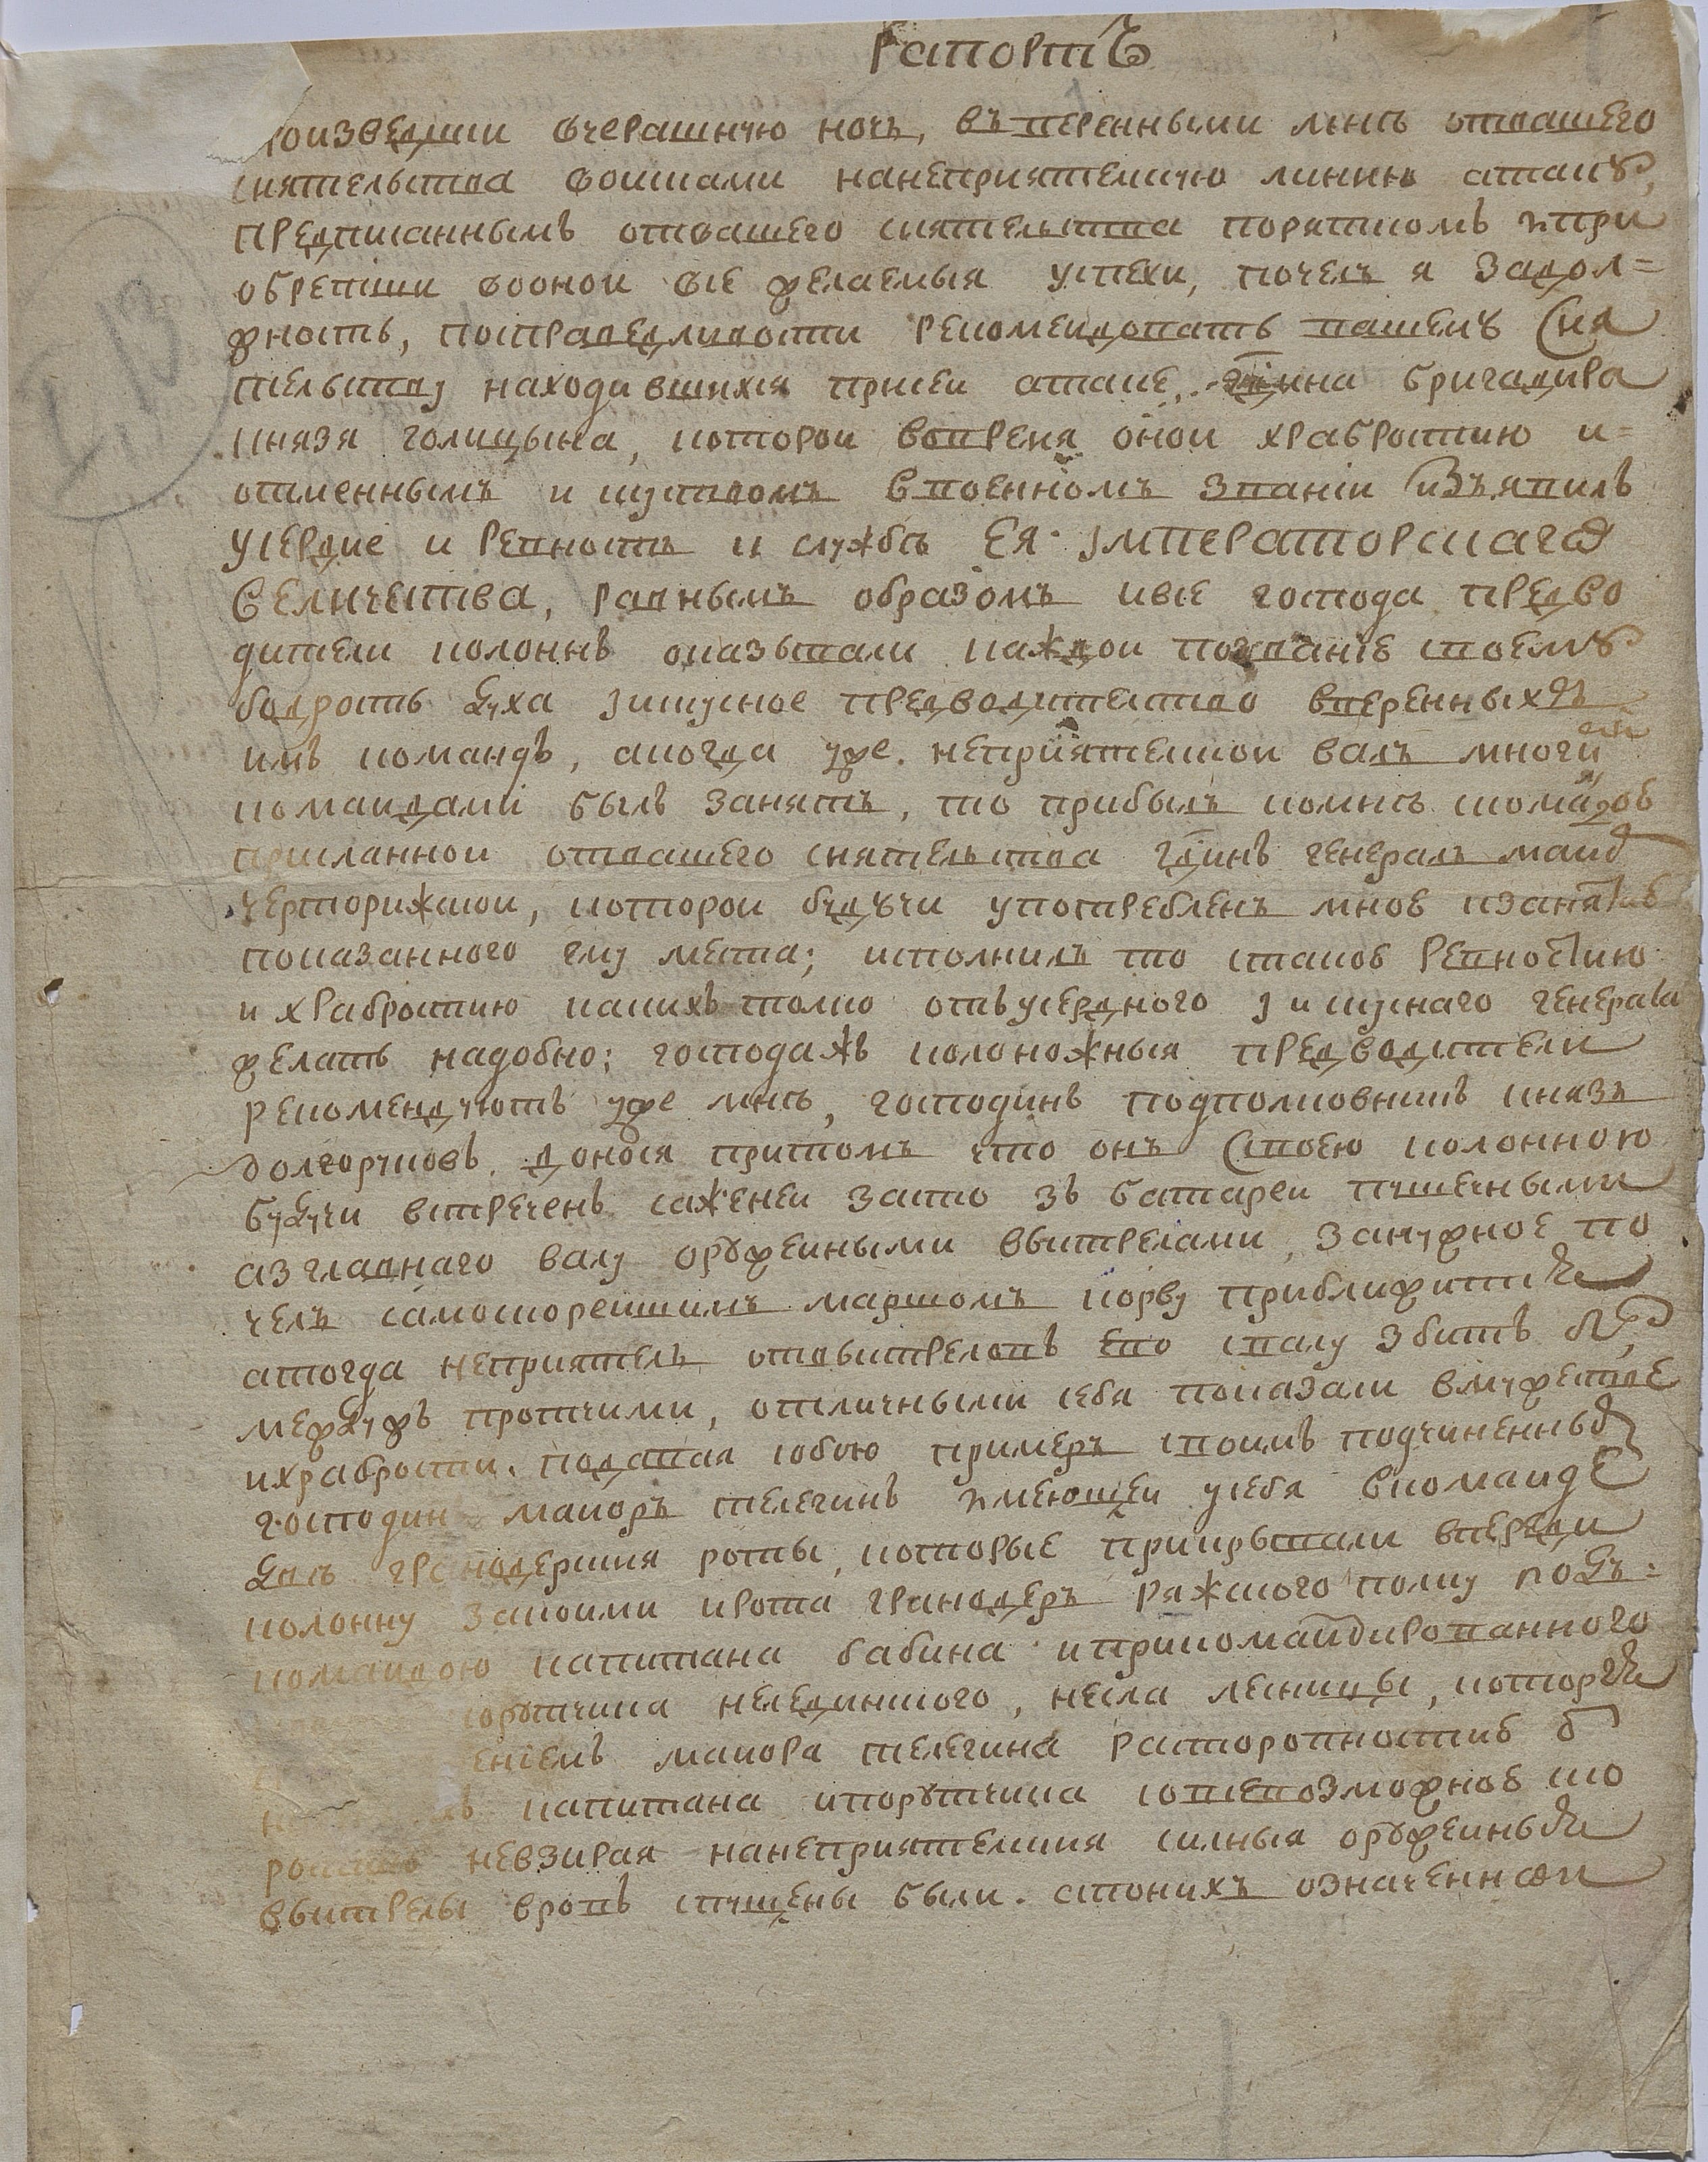 Рапортъ
роизведши вчерашнюю ночь, въ веренными мнѣ отвашего
сиятельства воисками нанеприятелскую линию атаку,
предписаннымъ отвашего сиятельства поряткомъ ипри
обретши воонои все желаемыя успехи, почелъ я задол=
жность, посправедливости рекомендовать вашему Сия
тельству находившихся присеи атаке, гдина бригадира
князя голицына, которои вовремя онои храбростию и=
отменнымъ искуствомъ ввоенномъ знаніи изъявилъ
усердие и ревность к службѣ ЕЯ Імператорскаго
Величества, равнымъ образомъ ивсе господа предво
дители колоннъ оказывали каждои позванію своему
бодрость духа іискусное предводителство вверенныхъ
имъ командъ, акогда уже неприятелскои валъ многи
командами былъ занятъ, то прибылъ комнѣ
присланнои отвашего сиятельства гдинъ генералъ маио
черторижскои, которои будучи употребленъ мною кзанятию
показанного ему места; исполнилъ то стакою ревностию
и храбростию какихъ толко отъусердного іискуснаго генерала
желать надобно: господажъ колоножныя предводители
рекомендуютъ уже мнѣ, господинъ подполковникъ князь
долгоруковъ. донося притомъ что онъ Своею колонною
будучи встреченъ саженеи засто зъ батареи пушечными
азглавнаго валу оружеиными выстрелами, занужное по
челъ самоскореишимъ маршомъ корву приближится
атогда неприятель отвыстреловъ ево свалу збитъ
междужъ протчими, отличными себя показали вмужестве
ихрабрости. подавая собою примеръ своимъ подчиненны
господинъ маиоръ телегинъ имеющеи усебя вкоманде
двѣ гранодерския роты, которые прикрывали впереди
колонну запоими ирота гранодеръ ряжского полку подъ=
командою капитана бабина иприкомандированного
порутчика нелединского, несла лесницы, которыя
ениемъ маиора телегина расторопностию
капитана ипорутчика совсевозможною ско
ростию невзирая нанеприятелския силныя оружеиныя
выстрелы вровъ спущены были. апоннихъ означеннои